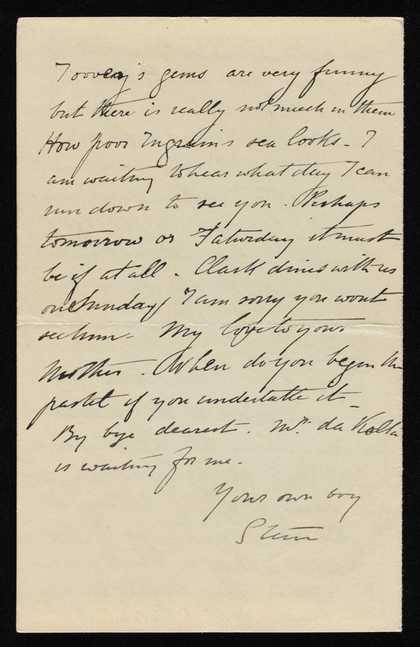 Toovey's gems are very funny
but there is really not much in them
How poor Ingram's sea looks - I
am waiting to hear what day I can
run down to see you. Perhaps
tomorrow or Saturday it must
be if at all - Clark dines with us
on Sunday I am sorry you wont
see him - My love to your
Mother. When do you begin the
pastel if you undertake it -
By bye dearest. Mr. da
is waiting for me.
Yours own boy